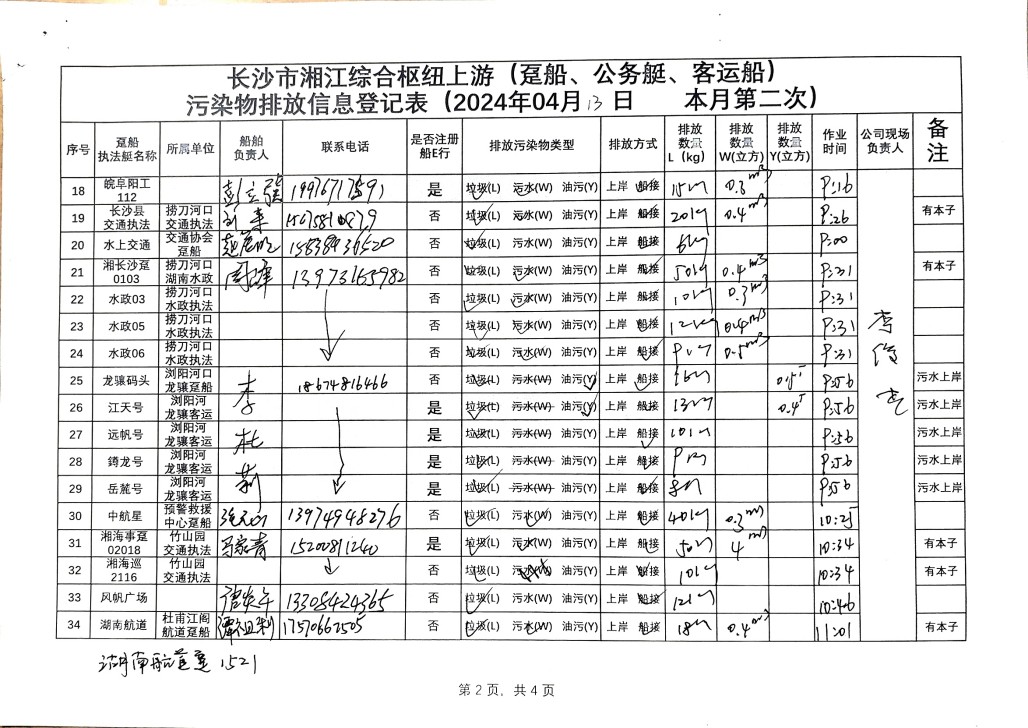 长沙市湘江综合枢纽上游（趸船、公务艇、客运船）
污染物排放信息登记表（2024年04月13日 本月第二次）
序号 趸船执法艇名称 所属单位 船舶负责人 联系电话 是否注册船E行 排放污染物类型 排放方式 排放数量L（kg） 排放数量W(立方) 排放数量Y(立方) 作业时间 公司现场负责人 备注
18 皖阜阳工112 是 垃圾(L) 污水(W) 油污(Y) 上岸 船接 0.3m³
19 长沙县交通执法 捞刀河口交通执法 否 垃圾(L) 污水(W) 油污(Y) 上岸 船接 20kg 0.4m³ 有本子
20 水上交通 交通协会趸船 否 垃圾(L) 污水(W) 油污(Y) 上岸 船接
21 湘长沙趸0103 捞刀河口湖南水政 周峰 13973165982 否 垃圾(L) 污水(W) 油污(Y) 上岸 船接 50kg 0.4m³ 有本子
22 水政03 捞刀河口水政执法 否 垃圾(L) 污水(W) 油污(Y) 上岸 船接 10kg 0.3m³
23 水政05 捞刀河口水政执法 否 垃圾(L) 污水(W) 油污(Y) 上岸 船接 12kg 0.4m³
24 水政06 捞刀河口水政执法 否 垃圾(L) 污水(W) 油污(Y) 上岸 船接 0.5m³
25 龙骧码头 浏阳河口龙骧趸船 李 18674816466 否 垃圾(L) 污水(W) 油污(Y) 上岸 船接 污水上岸
26 江天号 浏阳河龙骧客运 是 垃圾(L) 污水(W) 油污(Y) 上岸 船接 污水上岸
27 远帆号 浏阳河龙骧客运 杜 是 垃圾(L) 污水(W) 油污(Y) 上岸 船接 污水上岸
28 鐏龙号 浏阳河龙骧客运 是 垃圾(L) 污水(W) 油污(Y) 上岸 船接 污水上岸
29 岳麓号 浏阳河龙骧客运 是 垃圾(L) 污水(W) 油污(Y) 上岸 船接 污水上岸
30 中航星 预警救援中心趸船 13974948276 否 垃圾(L) 污水(W) 油污(Y) 上岸 船接 40kg 0.3m³ 10:25
31 湘海事趸02018 竹山园交通执法 马家青 15200811240 是 垃圾(L) 污水(W) 油污(Y) 上岸 船接 50kg 4m³ 10:34 有本子
32 湘海巡2116 竹山园交通执法 否 垃圾(L) 污水(W) 油污(Y) 上岸 船接 10kg 10:34 有本子
33 风帆广场 13308424365 否 垃圾(L) 污水(W) 油污(Y) 上岸 船接 12kg 10:46
34 湖南航道 杜甫江阁航道趸船 17570662505 否 垃圾(L) 污水(W) 油污(Y) 上岸 船接 18kg 0.4m³ 11:01 有本子
湖南航道趸1521
第 2 页，共 4 页